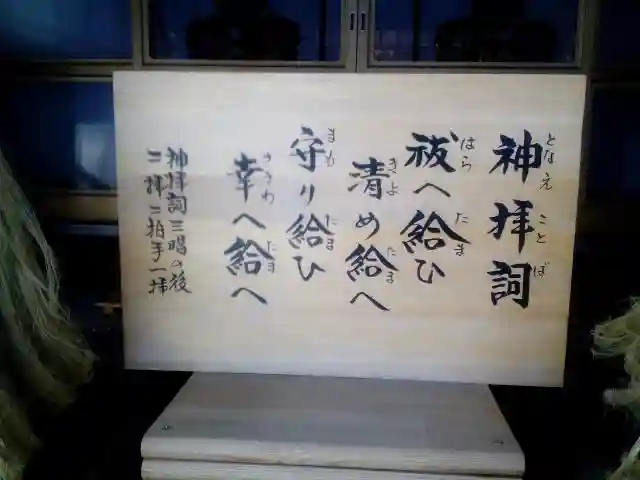 神拝詞
となえことば
祓へ給ひ
はらたま
清め給へ
きよたま
守り給ひ
まもたま
幸へ給へ
さきわたま
神拝詞三唱の後
二拝二拍手一拝